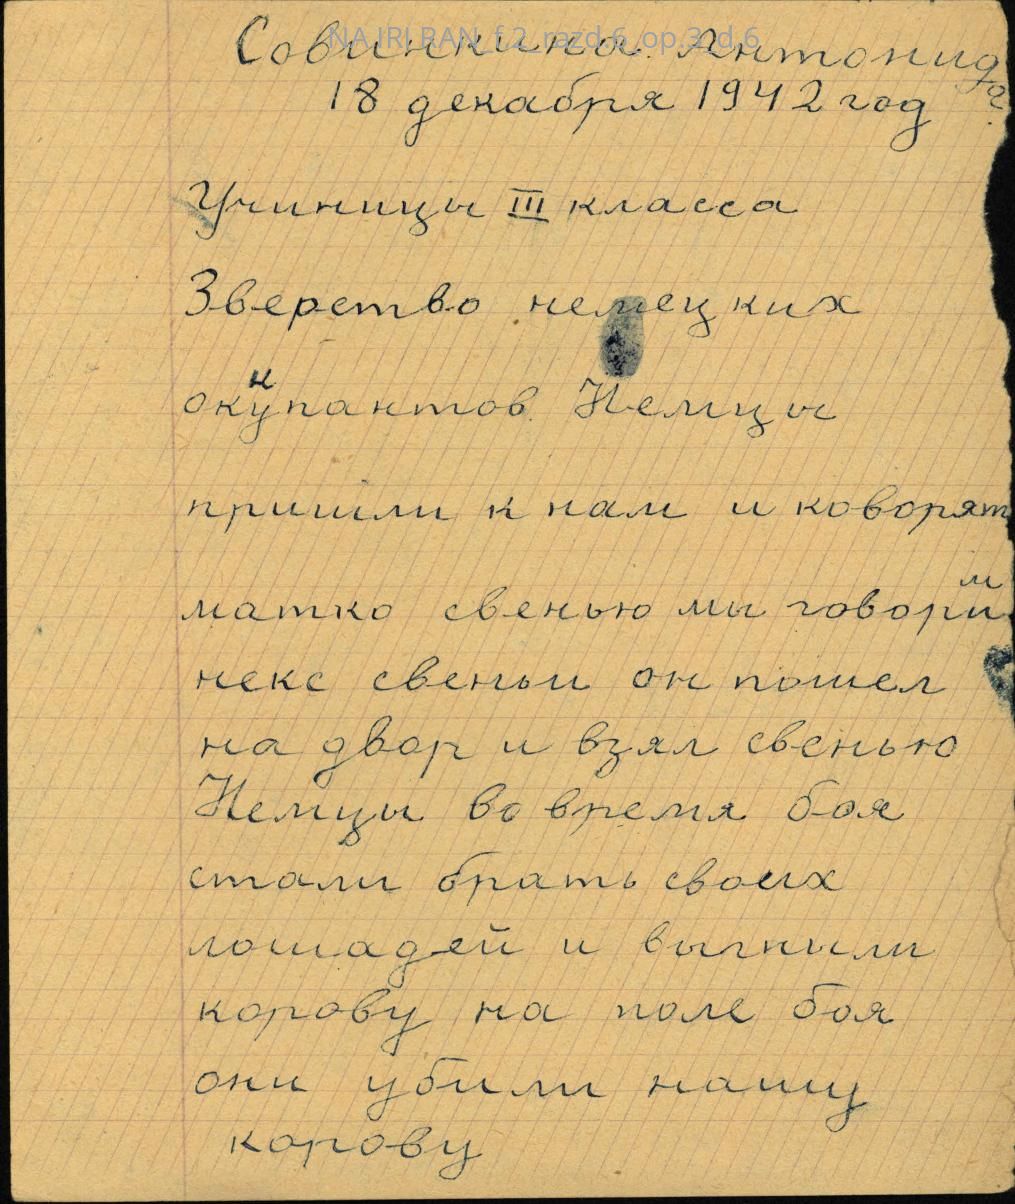 NA IRI RAN_f.2_razd.6_op.3_d.6
Совинкина Антонида
18 декабря 1942 год
Учиницы III класса
Зверство немецких
оккупантов Немцы
пришли к нам и коворят
матко свенью мы говорим
некс свеньи он пошел
на двор и взял свенью
Немцы во время боя
стали брать своих
лошадей и выгныли
корову на поле боя
они убили нашу
корову